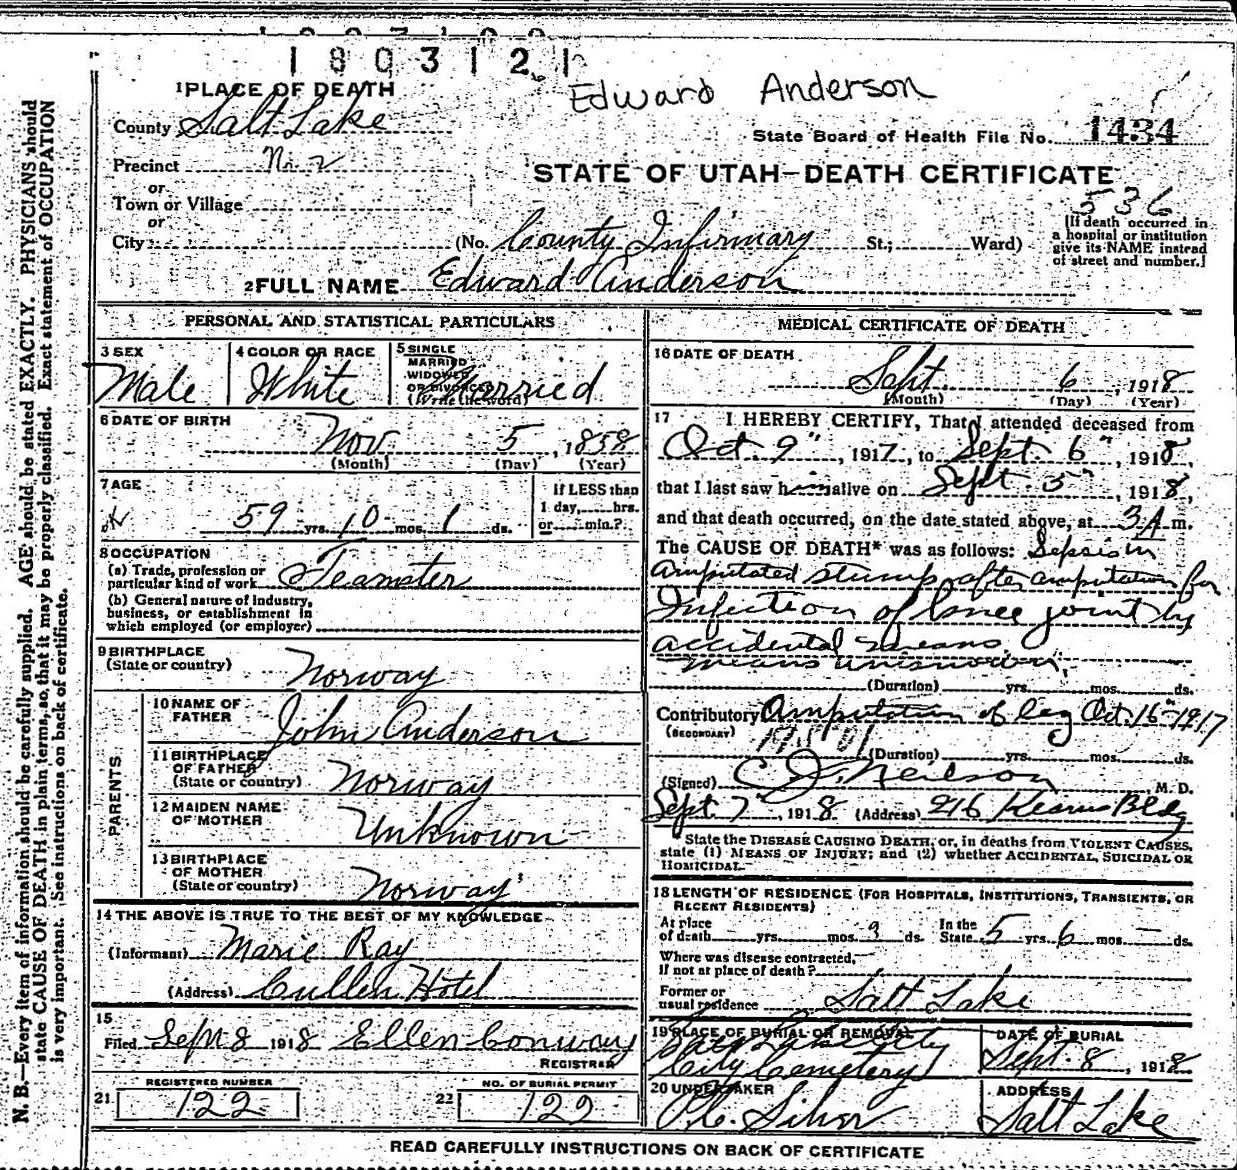 1803121
Edward Anderson
1 PLACE OF DEATH
County Salt Lake
State Board of Health File No. 1434
Precinct No. 2
STATE OF UTAH—DEATH CERTIFICATE
or
Town or Village
536
or
City
(No. County Infirmary St.; Ward)
[If death occurred in a hospital or institution give its NAME instead of street and number.]
2 FULL NAME Edward Anderson
PERSONAL AND STATISTICAL PARTICULARS
3 SEX
Male
4 COLOR OR RACE
White
5 SINGLE
MARRIED
WIDOWED
OR DIVORCED
(Write the word)
Married
6 DATE OF BIRTH
Nov 5, 1858
(Month) (Day) (Year)
7 AGE
59 yrs. 10 mos. 1 ds.
If LESS than
1 day, hrs.
or min.?
8 OCCUPATION
(a) Trade, profession or
particular kind of work Teamster
(b) General nature of industry,
business, or establishment in
which employed (or employer)
9 BIRTHPLACE
(State or country) Norway
PARENTS
10 NAME OF
FATHER John Anderson
11 BIRTHPLACE
OF FATHER
(State or country) Norway
12 MAIDEN NAME
OF MOTHER Unknown
13 BIRTHPLACE
OF MOTHER
(State or country) Norway
14 THE ABOVE IS TRUE TO THE BEST OF MY KNOWLEDGE
(Informant) Marie Ray
(Address) Cullen Hotel
15
Filed Sept 8 1918 Ellen Conway
REGISTRAR
REGISTERED NUMBER
21 122
NO. OF BURIAL PERMIT
22 122
MEDICAL CERTIFICATE OF DEATH
16 DATE OF DEATH
Sept. 6, 1918
(Month) (Day) (Year)
17 I HEREBY CERTIFY, That I attended deceased from
Oct. 9", 1917, to Sept. 6", 1918,
that I last saw him alive on Sept. 5", 1918,
and that death occurred, on the date stated above, at 3 A m.
The CAUSE OF DEATH* was as follows: Sepsis in
amputated stump after amputation for
Infection of knee joint by
accidental means.
means unknown
(Duration) yrs. mos. ds.
Contributory Amputation of leg Oct. 16" 1917
(SECONDARY)
(Duration) yrs. mos. ds.
(Signed) C. J. Neilson M. D.
Sept 7", 1918 (Address) 216 Kearns Bldg
State the DISEASE CAUSING DEATH, or, in deaths from VIOLENT CAUSES,
state (1) MEANS OF INJURY; and (2) whether ACCIDENTAL, SUICIDAL OR
HOMICIDAL.
18 LENGTH OF RESIDENCE (FOR HOSPITALS, INSTITUTIONS, TRANSIENTS, OR
RECENT RESIDENTS)
At place
of death yrs. mos. 9 ds.
In the
State 5 yrs. 6 mos. — ds.
Where was disease contracted,
if not at place of death?
Former or
usual residence Salt Lake
19 PLACE OF BURIAL OR REMOVAL
City Cemetery
DATE OF BURIAL
Sept. 8, 1918
20 UNDERTAKER
Silver
ADDRESS
Salt Lake
READ CAREFULLY INSTRUCTIONS ON BACK OF CERTIFICATE
N. B.—Every item of information should be carefully supplied. AGE should be stated EXACTLY. PHYSICIANS should
state CAUSE OF DEATH in plain terms, so that it may be properly classified. Exact statement of OCCUPATION
is very important. See instructions on back of certificate.